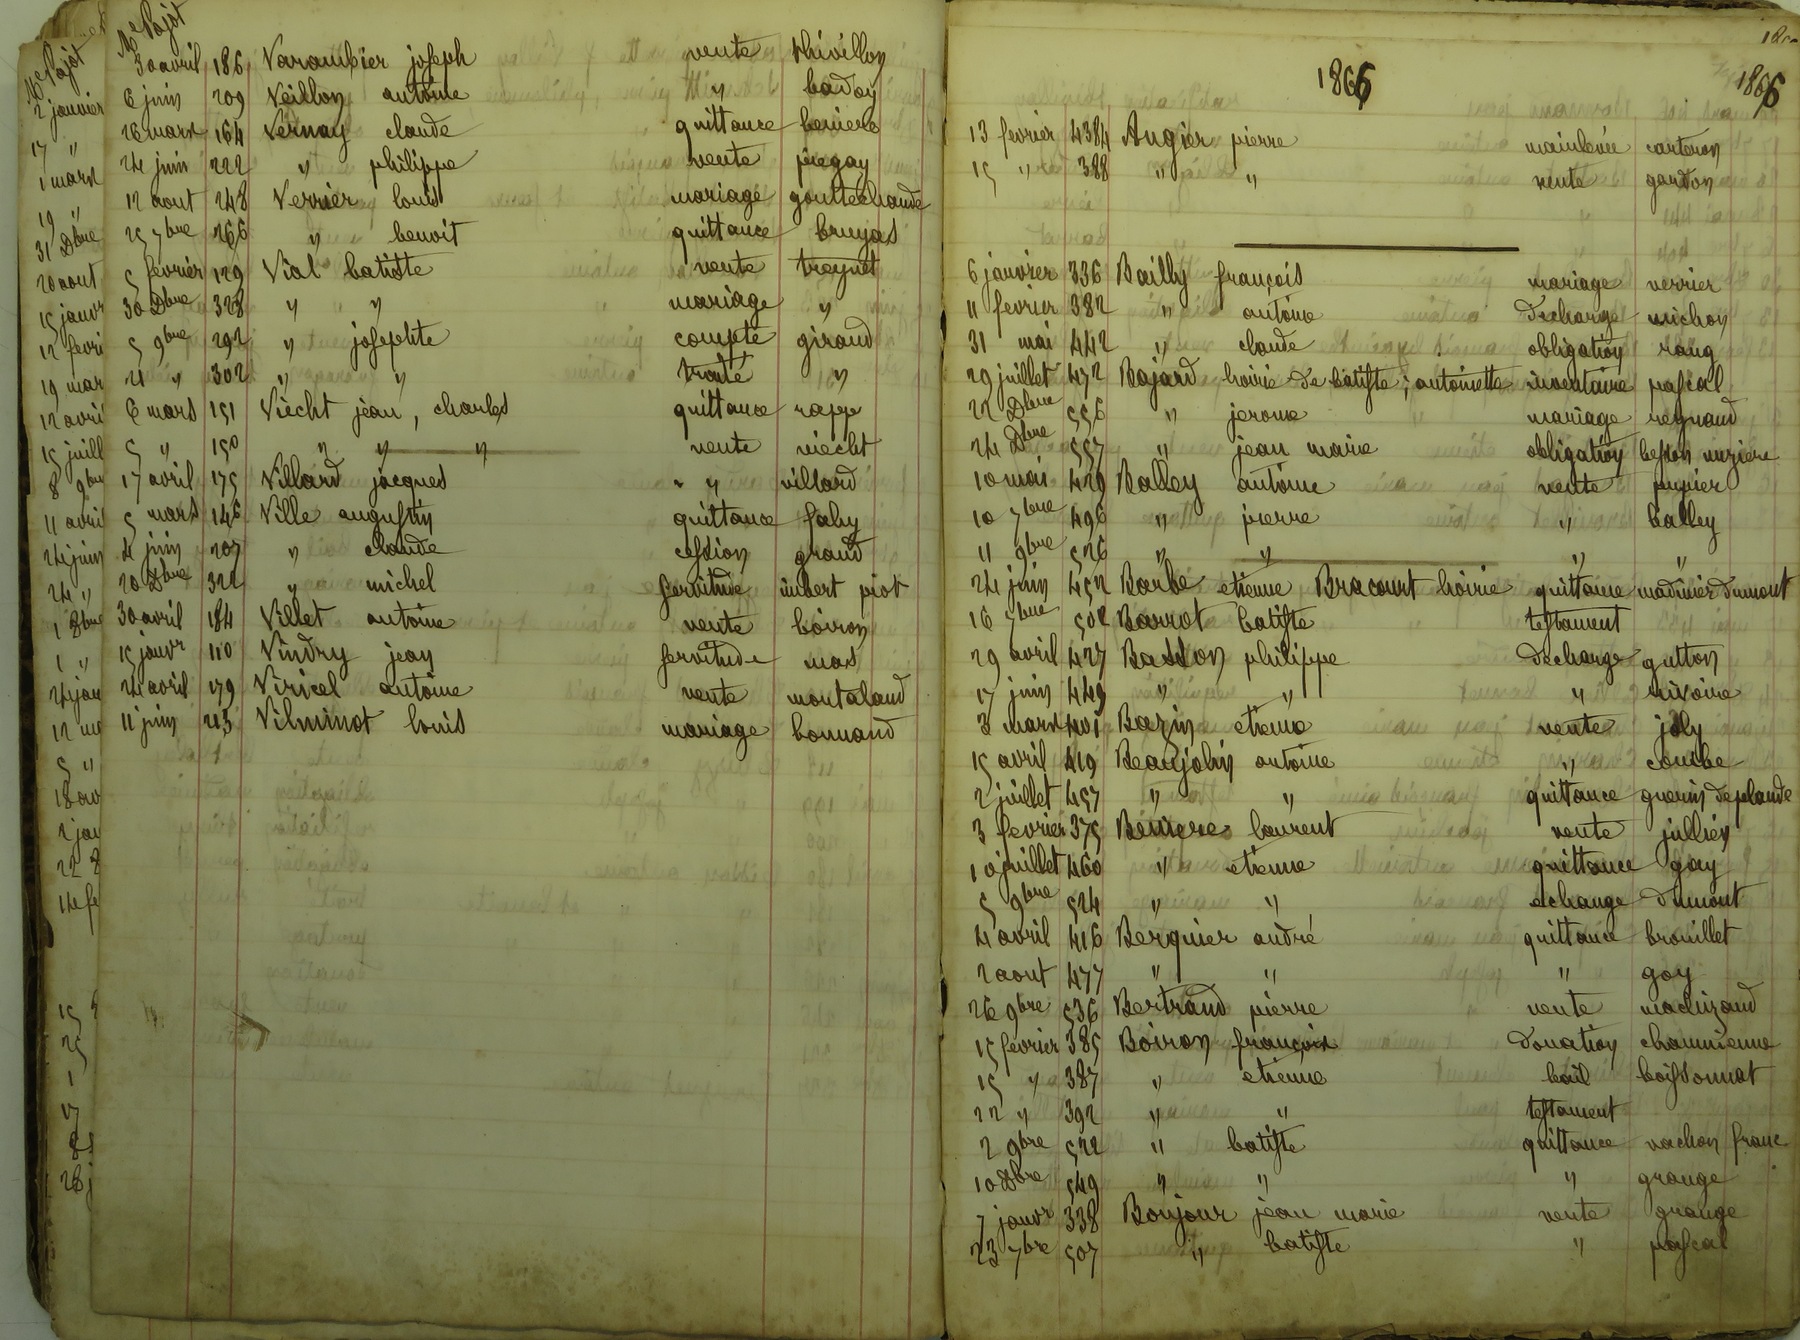 Me Pajot
30 avril 186 Varambier joseph vente thivillon
6 juin 209 Veillon antoine " badoy
26 mars 164 Vernay claude quittance beniere
24 juin 222 " philippe vente piegay
12 aout 248 Verrier louis mariage gouttechaude
25 7bre 266 " benoit quittance bruyas
5 février 129 Vial batiste vente treynet
30 Dbre 328 " " mariage "
5 9bre 292 " josephte compte giraud
21 " 302 " " traité "
6 mars 151 Viecht jean, charles quittance rapp
5 " 150 " " " vente viecht
17 avril 175 Villard jacques " villard
5 mars 146 Ville augustin quittance faby
4 juin 207 " claude cession grand
20 Dbre 322 " michel servitude imbert piot
30 avril 184 Villet antoine vente boiron
15 janvr 110 Vindry jean servitude mas
24 avril 179 Viricel antoine vente montaland
11 juin 213 Vilminot louis mariage bonnand
Me Pajot
2 janvier
17 "
1 mars
19 "
31 Dbre
20 aout
15 janvr
12 fevri
19 mar
12 avri
15 juill
8 9bre
11 avril
24 juin
24 "
1 8bre
1 "
24 jan
12 
5 "
18 av
2 jan
22 8
14 fe
15
25
1
17
28 j
1866
1866
13 fevrier 4384 Augier pierre mainlevée carteron
15 " 388 " " vente gardon
6 janvier 336 Bailly françois mariage verrier
11 fevrier 382 " antoine Decharge michon
31 mai 442 " claude obligation rang
29 juillet 472 Bajard hoirie de batiste; antoinette inventaire pascal
22 Dbre 556 " jerome mariage regnaud
24 Dbre 557 " jean marie obligation besson miziere
10 mai 429 Balley antoine vente pupier
10 7bre 496 " pierre " balley
11 9bre 526 " " " "
24 juin 452 Barbe etienne Bracourt hoirie quittance madinier Dumont
16 7bre 502 Barrot batiste testament
29 avril 427 Basson philippe Decharge gutton
17 juin 449 " " " rivoire
3 mars 401 Bazin etienne vente joly
15 avril 419 Beaujolin antoine " combe
2 juillet 457 " " quittance guerin Deplaude
3 fevrier 375 Beniere laurent vente jullien
10 juillet 460 " etienne quittance gay
5 9bre 524 " " echange Dumont
4 avril 416 Berquier andré quittance brouillet
2 aout 477 " " " goy
26 9bre 536 Bertrand pierre vente machizaud
15 fevrier 385 Boiron françois Donation chaumienne
15 " 387 " etienne bail boissonnat
22 " 392 " " testament
2 9bre 522 " batiste quittance vachon franc
10 Dbre 549 " " " grange
7 janvr 338 Bonjour jean marie vente grange
23 7bre 507 " batiste " pascal